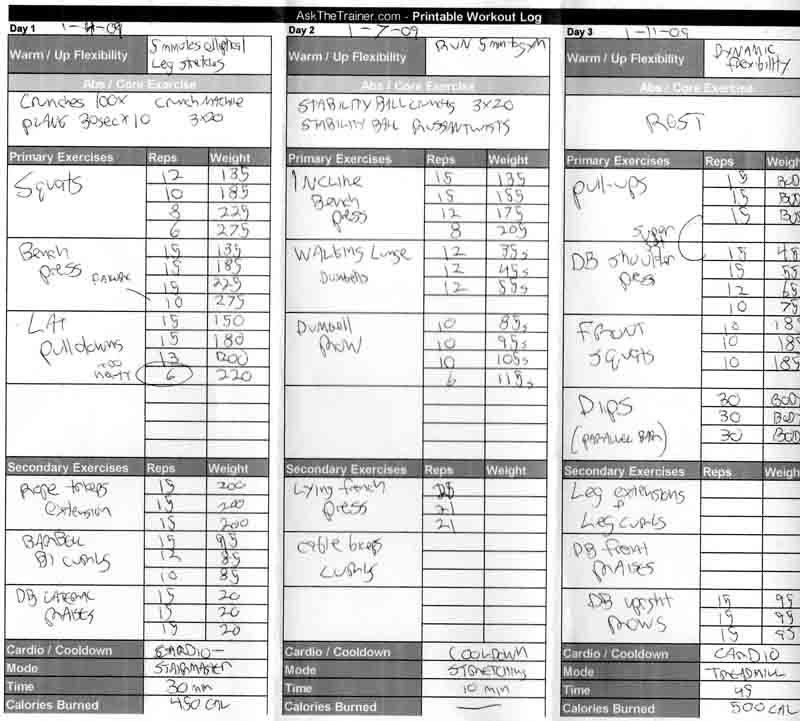 AskTheTrainer.com - Printable Workout Log
Day 1
Warm / Up Flexibility
5 minutes elliptical
Leg stretches
Abs / Core Exercise
Crunches 100x Crunch Machine
PLANK 30sec x 10 3x20
Primary Exercises Reps Weight
Squats
12 135
10 185
8 225
6 275
Bench press
15 135
15 185
15 225
FAILURE 10 275
LAT pulldowns
15 150
15 180
13 200
too heavy 6 220
Secondary Exercises Reps Weight
Rope triceps extension
15 200
15 200
15 200
BARBELL Bi curls
15 95
12 85
10 85
DB LATERAL RAISES
15 20
15 20
15 20
Cardio / Cooldown CARDIO
Mode STAIRMASTER
Time 30 min
Calories Burned 450 CAL
Day 2 1-7-09
Warm / Up Flexibility
RUN 5min to gym
Abs / Core Exercise
STABILITY BALL crunches 3x20
STABILITY BALL RUSSIAN TWISTS
Primary Exercises Reps Weight
INCLINE Bench press
15 135
15 155
12 175
8 205
WALKING Lunge Dumbells
12 35s
12 45s
12 55s
Dumbell ROW
10 85s
10 95s
10 105s
6 115s
Secondary Exercises Reps Weight
Lying french press
21
21
cable biceps curls
Cardio / Cooldown COOLDOWN
Mode STRETCHING
Time 10 min
Calories Burned —
Day 3 1-11-09
Warm / Up Flexibility
DYNAMIC flexibility
Abs / Core Exercise
REST
Primary Exercises Reps Weigh
pull-ups
15 BOD
15 BOD
15 BOD
super set
DB shoulder press
15 45
15 55
12 65
10 75
FRONT squats
10 185
10 185
10 185
Dips
(PARALLEL BAR)
30 BOD
30 BOD
30 BOD
Secondary Exercises Reps Weigh
Leg extensions
+
Leg curls
DB front RAISES
DB upright ROWS
15 95
15 95
15 95
Cardio / Cooldown CARDIO
Mode TREADMILL
Time 45
Calories Burned 500 CAL